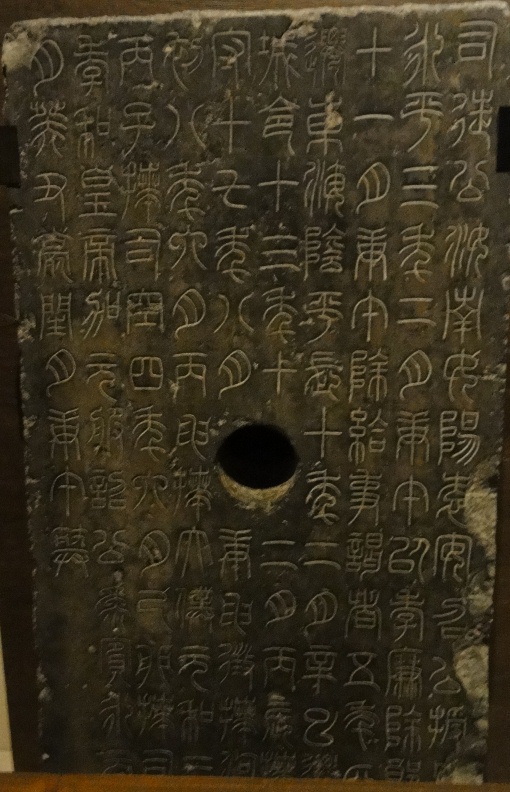 司徒公汝南女陽袁安召公授
永平三年二月庚午以孝廉除郎
十一月庚午除給事謁者五年四
遷東海陰平長十年二月辛巳遷
城令十三年十二月丙辰拜
守十七年八月庚申徵拜河
初八年六月丙申拜太僕元和三
丙子拜司空四年六月己卯拜司
孝和皇帝加元服詔公為賓永元
月癸丑薨閏月庚午葬